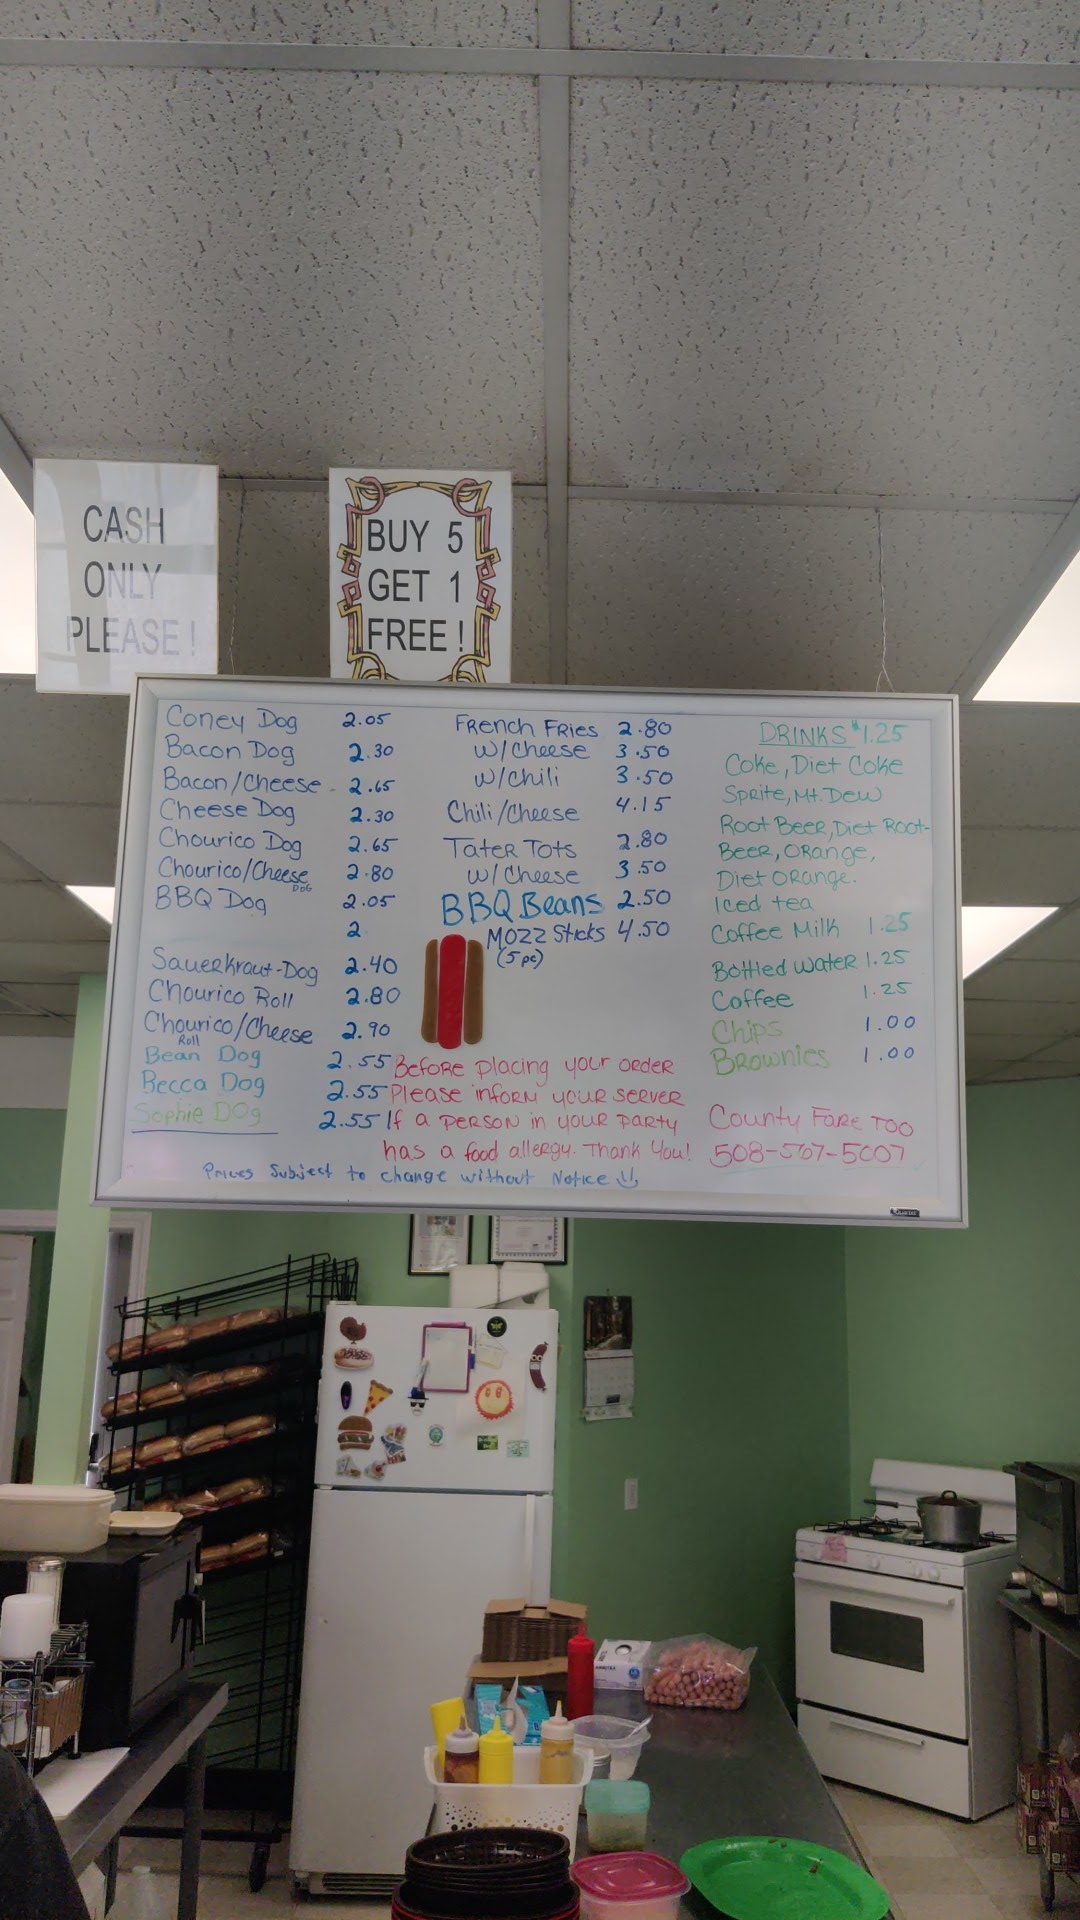 CASH
ONLY
PLEASE!
BUY 5
GET 1
FREE!
Coney Dog 2.05
Bacon Dog 2.30
Bacon/Cheese - 2.65
Cheese Dog 2.30
Chourico Dog 2.65
Chourico/Cheese Dog 2.80
BBQ Dog 2.05
2
Sauerkraut-Dog 2.40
Chourico Roll 2.80
Chourico/Cheese Roll 2.90
Bean Dog 2.55
Becca Dog 2.55
Sophie Dog 2.55
French Fries 2.80
w/Cheese 3.50
w/Chili 3.50
Chili/Cheese 4.15
Tater Tots 2.80
w/Cheese 3.50
BBQ Beans 2.50
Mozz Sticks 4.50
(5pc)
Before placing your order
Please inform your server
If a person in your party
has a food allergy. Thank You!
DRINKS $1.25
Coke, Diet Coke
Sprite, Mt. Dew
Root Beer, Diet Root-
Beer, Orange,
Diet Orange.
Iced tea
Coffee Milk 1.25
Bottled Water 1.25
Coffee 1.25
Chips 1.00
Brownies 1.00
County Fare Too
508-567-5007
Prices Subject to change without Notice
Quartet